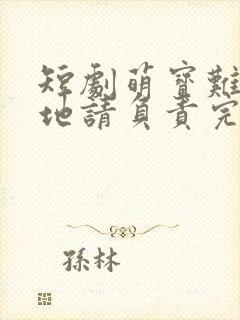 短劇萌寶難
地請負責完
孫林